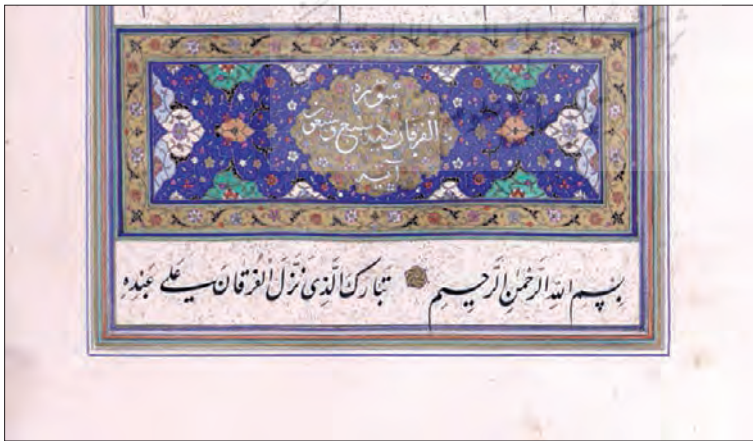 سورة
الفرقان سبع وسبعون
آیه
بِسْمِ اللهِ الرَّحْمٰنِ الرَّحِیْمِ تَبَارَكَ الَّذِی نَزَّلَ الْفُرْقَانَ عَلٰی عَبْدِهِ